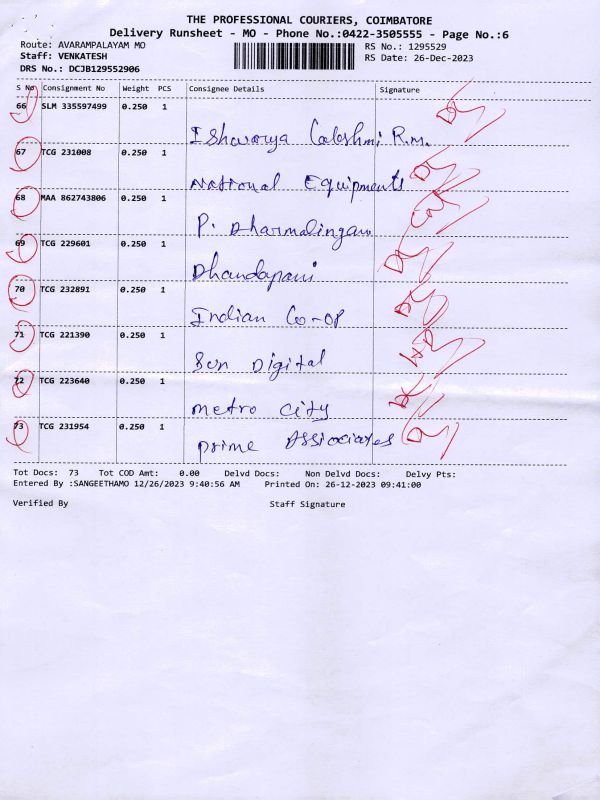 THE PROFESSIONAL COURIERS, COIMBATORE
Delivery Runsheet - MO - Phone No.:0422-3505555 - Page No.:6
Route: AVARAMPALAYAM MO RS No.: 1295529
Staff: VENKATESH RS Date: 26-Dec-2023
DRS No.: DCJB129552906
S No Consignment No Weight PCS Consignee Details Signature
66 SLM 335597499 0.250 1
Ishwarya Lakshmi R.M.
67 TCG 231008 0.250 1
National Equipments
68 MAA 862743806 0.250 1
P. Dharmalingam
69 TCG 229601 0.250 1
Dhandapani
70 TCG 232891 0.250 1
Indian Co-op
71 TCG 221390 0.250 1
Sun Digital
72 TCG 223640 0.250 1
Metro City
73 TCG 231954 0.250 1
Prime Assiociates
Tot Docs: 73 Tot COD Amt: 0.00 Delvd Docs: Non Delvd Docs: Delvy Pts:
Entered By :SANGEETHAMO 12/26/2023 9:40:56 AM Printed On: 26-12-2023 09:41:00
Verified By Staff Signature